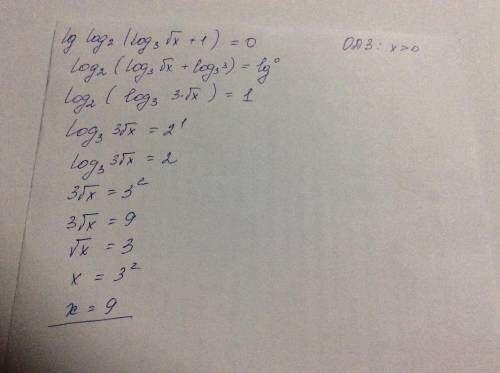 lg log₂ (log₃ √x + 1) = 0 ОДЗ: x>0
log₂ (log₃ √x + log₃ 3) = lg⁰
log₂ ( log₃ 3·√x ) = 1
log₃ 3√x = 2¹
log₃ 3√x = 2
3√x = 3²
3√x = 9
√x = 3
x = 3²
x = 9